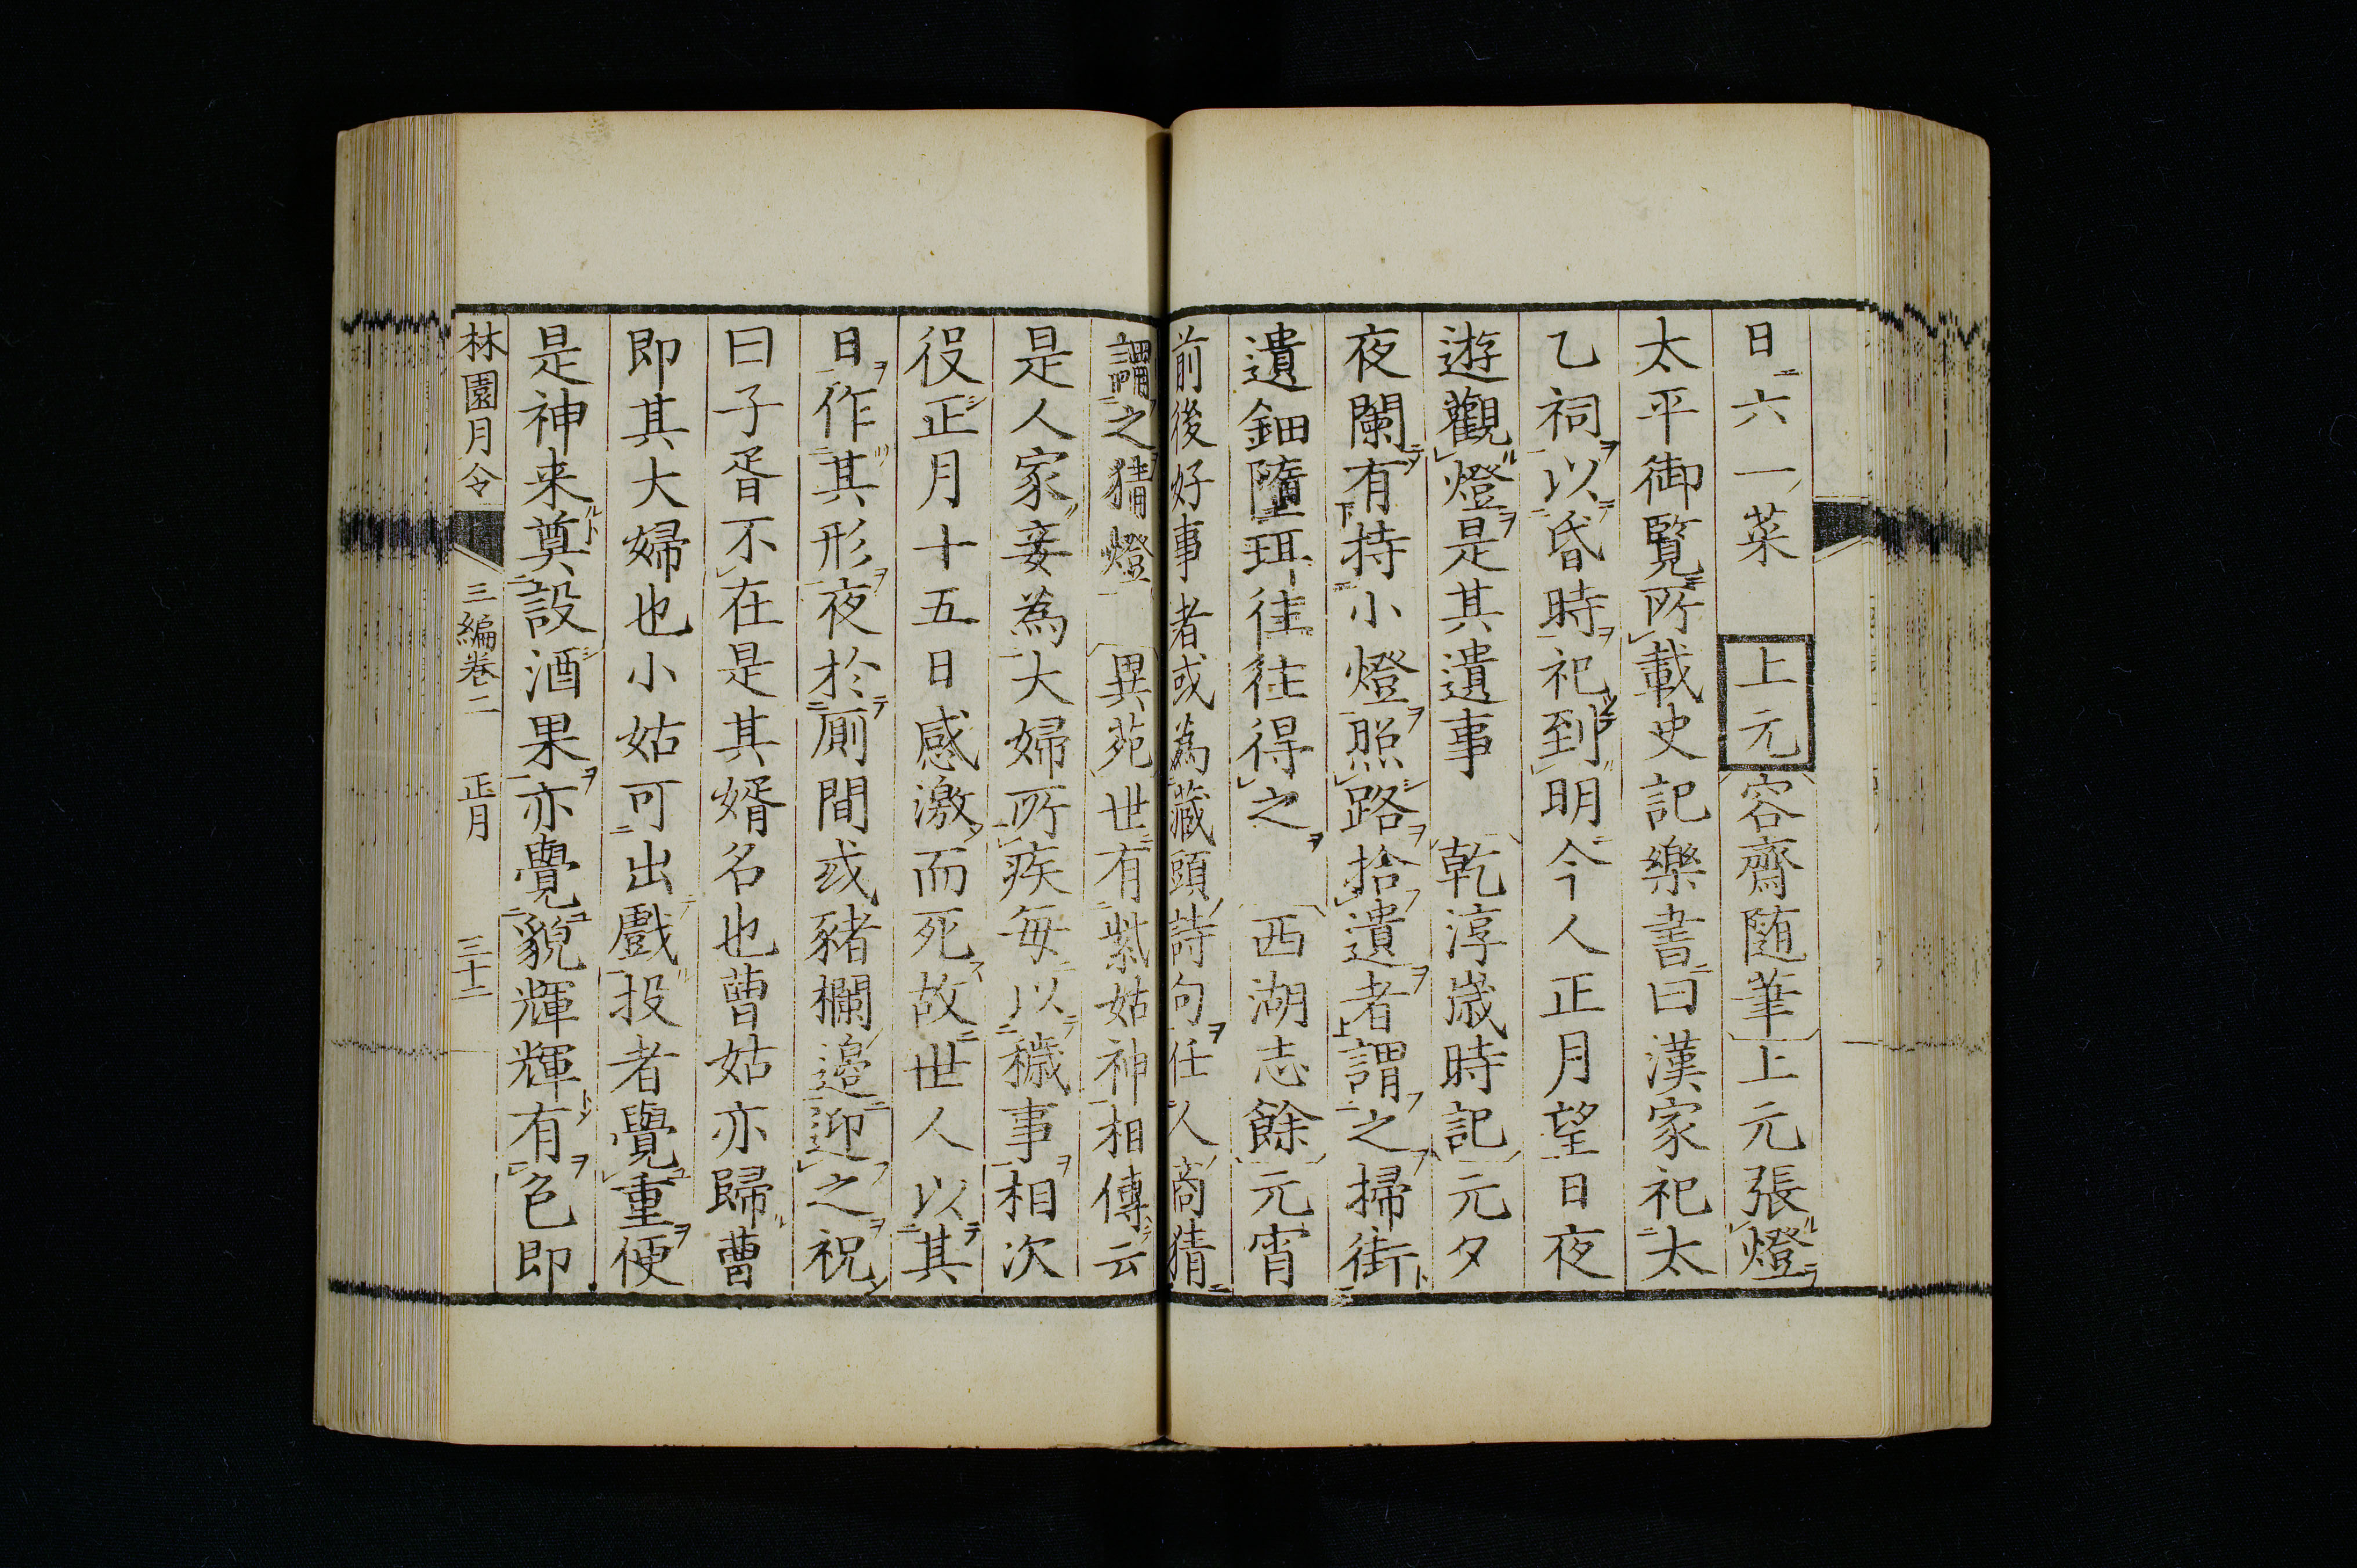 日六一菜 上元 容齋随筆 上元張燈
太平御覧所載史記樂書曰漢家祀太
乙祠以昏時祀到明今人正月望日夜
遊觀燈是其遺事 乾淳歳時記 元夕
夜闌有持小燈照路拾遺者謂之掃街
遺鈿墮珥往往得之 西湖志餘 元宵
前後好事者或為藏頭詩句任人商猜
謂之猜燈 異苑 世有紫姑神相傳云
是人家妾為大婦所疾毎以穢事相次
役正月十五日感激而死故世人以其
日作其形夜於厠間或豬欄邉迎之祝
曰子胥不在是其婿名也曹姑亦歸曹
即其大婦也小姑可出戲投者覺重便
是神来奠設酒果亦覺貌輝輝有色即
林園月令 三編巻二 正月 三十二